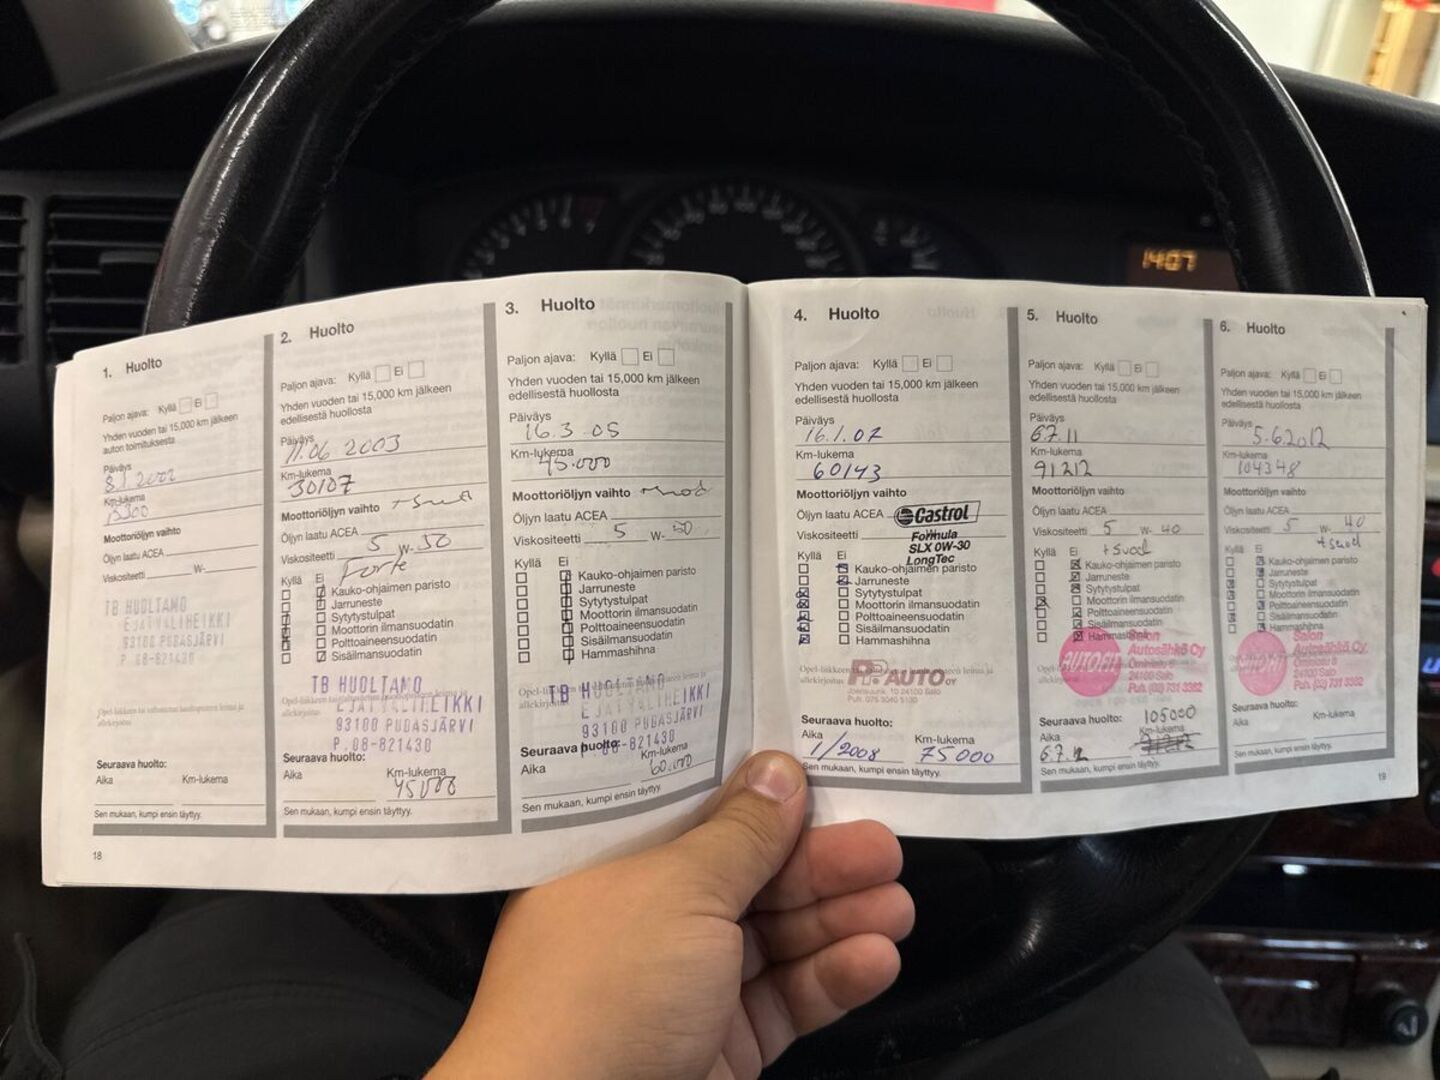 1. Huolto
Paljon ajava: Kyllä Ei
Yhden vuoden tai 15,000 km jälkeen
auton toimituksesta
Päiväys
2002
Km-lukema
Moottoriöljyn vaihto
Öljyn laatu ACEA
Viskositeetti W-
TB HUOLTAMO
EJATVALIHEIKKI
93100 PUDASJÄRVI
P. 08-821430
Opel-liikkeen tai valtuutetun huoltopisteen leima ja
allekirjoitus
Seuraava huolto:
Aika Km-lukema
Sen mukaan, kumpi ensin täyttyy.
18
2. Huolto
Paljon ajava: Kyllä Ei
Yhden vuoden tai 15,000 km jälkeen
edellisestä huollosta
Päiväys
11.06 2003
Km-lukema
30107
Moottoriöljyn vaihto
Öljyn laatu ACEA
Viskositeetti 5 W- 50
Forte
Kyllä Ei
Kauko-ohjaimen paristo
Jarruneste
Sytytystulpat
Moottorin ilmansuodatin
Polttoaineensuodatin
Sisäilmansuodatin
TB HUOLTAMO
EJATVALIHEIKKI
93100 PUDASJÄRVI
P. 08-821430
allekirjoitus
Seuraava huolto:
Aika Km-lukema
45000
Sen mukaan, kumpi ensin täyttyy.
3. Huolto
Paljon ajava: Kyllä Ei
Yhden vuoden tai 15,000 km jälkeen
edellisestä huollosta
Päiväys
16.3.05
Km-lukema
45.000
Moottoriöljyn vaihto
Öljyn laatu ACEA
Viskositeetti 5 W- 50
Kyllä Ei
Kauko-ohjaimen paristo
Jarruneste
Sytytystulpat
Moottorin ilmansuodatin
Polttoaineensuodatin
Sisäilmansuodatin
Hammashihna
TB HUOLTAMO
EJATVALIHEIKKI
93100 PUDASJÄRVI
P. 08-821430
Seuraava huolto:
Aika Km-lukema
60.000
Sen mukaan, kumpi ensin täyttyy.
4. Huolto
Paljon ajava: Kyllä Ei
Yhden vuoden tai 15,000 km jälkeen
edellisestä huollosta
Päiväys
16.1.07
Km-lukema
60143
Moottoriöljyn vaihto
Öljyn laatu ACEA Castrol
Viskositeetti Formula
SLX 0W-30
LongTec
Kyllä Ei
Kauko-ohjaimen paristo
Jarruneste
Sytytystulpat
Moottorin ilmansuodatin
Polttoaineensuodatin
Sisäilmansuodatin
Hammashihna
allekirjoitus
AUTO OY
24100 Salo
Seuraava huolto:
Aika Km-lukema
1/2008 75000
Sen mukaan, kumpi ensin täyttyy.
5. Huolto
Paljon ajava: Kyllä Ei
Yhden vuoden tai 15,000 km jälkeen
edellisestä huollosta
Päiväys
6.7.11
Km-lukema
91212
Moottoriöljyn vaihto
Öljyn laatu ACEA
Viskositeetti 5 W- 40
Kyllä Ei + suod
Kauko-ohjaimen paristo
Jarruneste
Sytytystulpat
Moottorin ilmansuodatin
Polttoaineensuodatin
Sisäilmansuodatin
Hammashihna
Salon
Autosähkö Oy
24100 Salo
Puh. (02) 731 3382
Seuraava huolto: 105000
Aika Km-lukema
6.7.12
Sen mukaan, kumpi ensin täyttyy.
6. Huolto
Paljon ajava: Kyllä Ei
Yhden vuoden tai 15,000 km jälkeen
edellisestä huollosta
Päiväys
5.6.2012
Km-lukema
104348
Moottoriöljyn vaihto
Öljyn laatu ACEA
Viskositeetti 5 W- 40
Kyllä Ei + suod
Kauko-ohjaimen paristo
Jarruneste
Sytytystulpat
Moottorin ilmansuodatin
Polttoaineensuodatin
Sisäilmansuodatin
Hammashihna
Salon
Autosähkö Oy
24100 Salo
Puh. (02) 731 3382
Seuraava huolto:
Aika Km-lukema
Sen mukaan, kumpi ensin täyttyy.
19
14:07